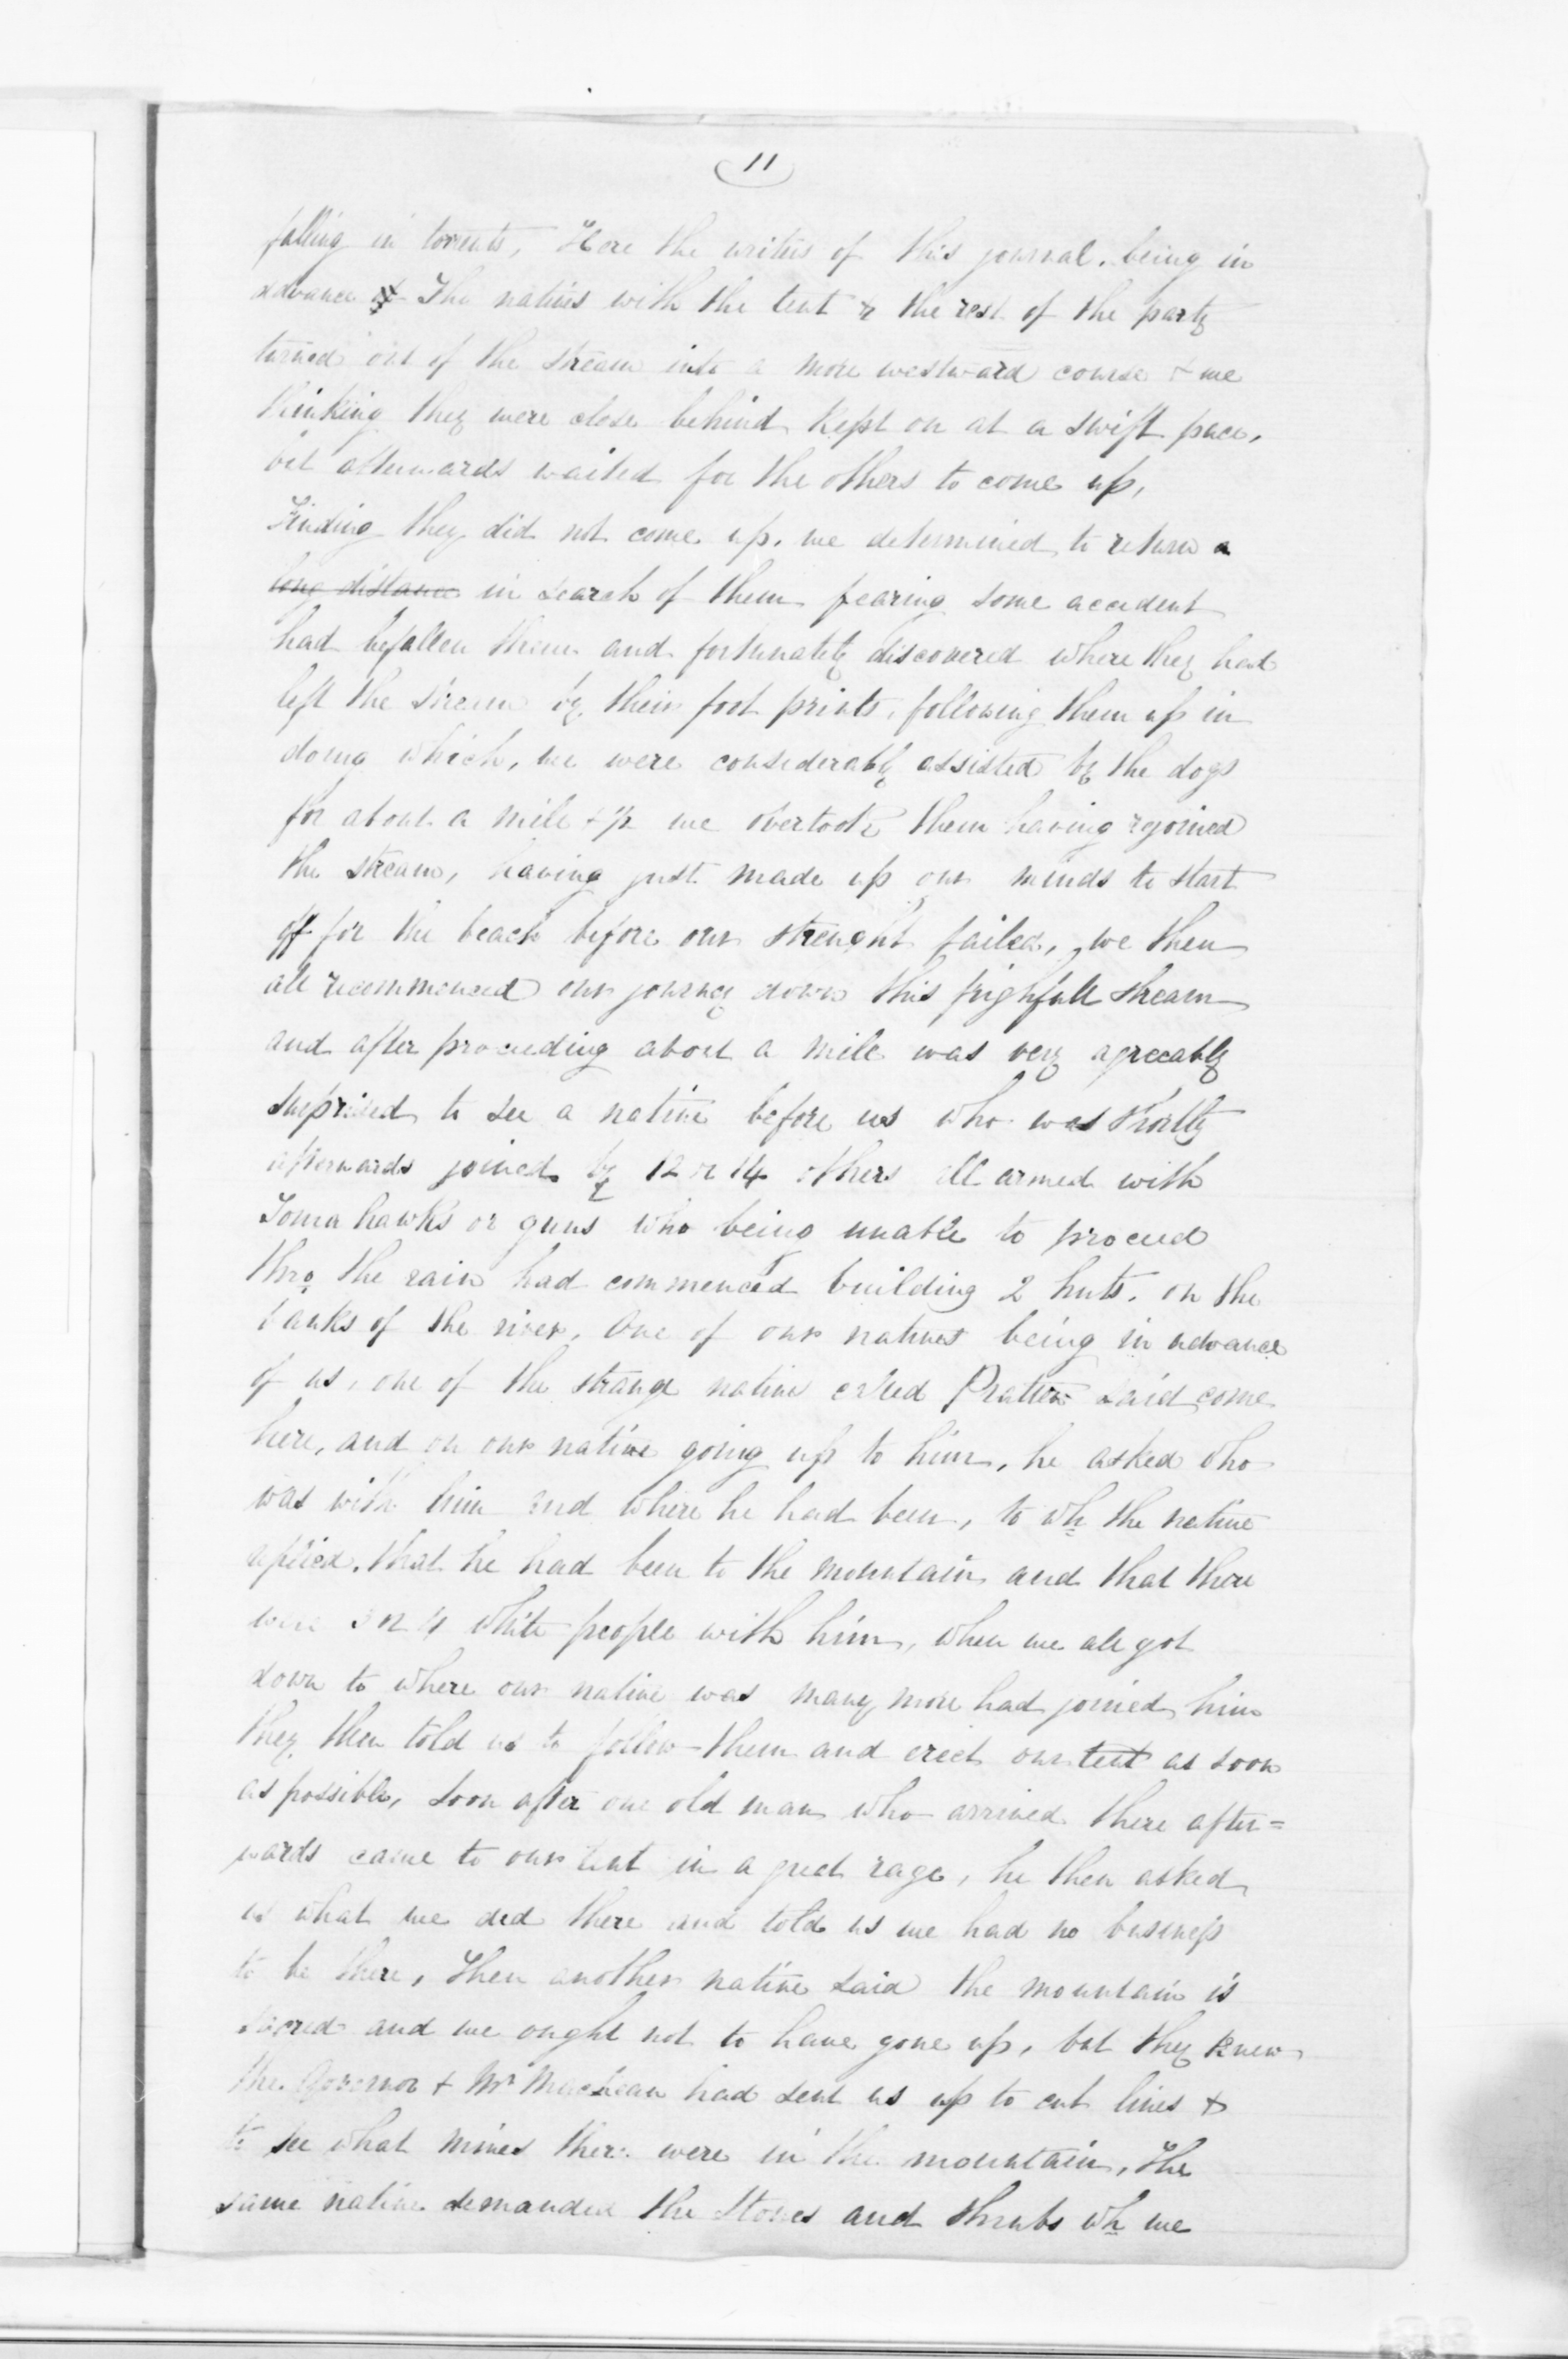 11
falling in torrents, Here the writer of this journal. being in
advance & The natives with the tent & the rest of the party
turned out of the stream into a more westward course & we
thinking they were close behind Kept on at a swift pace,
but afterwards waited for the others to come up,
Finding they did not come up. we determined to return a
long distance in search of them fearing some accident
had befallen them and fortunately discovered where they had
left the stream by their foot prints, following them up in
doing which, we were considerably assisted by the dogs
for about a mile & ½ we overtook them having rejoined
the stream, having just made up our minds to start
off for the beach before our strenght failed, we then
all recommenced our journey down this frighfull stream
and after proceeding about a mile was very agreeably
surprised to see a native before us who was shortly
afterwards joined by 12 or 14 others all armed with
Tomahawks or guns who being unable to proceed
thro the rain had commenced building 2 huts. on the
banks of the river, One of our natives being in advance
of us, one of the strange native called said come
here, and on our native going up to him, he asked who
was with him and where he had been, to wh the native
replied. that he had been to the mountain and that there
were 3 or 4 white people with him, when we all got
down to where our native was many more had joined him
they then told us to follow them and erect our tent as soon
as possible, soon after one old man who arrived there after=
wards came to our tent in a great rage, he then asked
us what we did there and told us we had no business
to be there, Then another native said the mountain is
sacred and we ought not to have gone up, but they knew
the Governor & Mr had sent us up to cut lines &
to see what mines there were in the mountain, The
same native demanded the Stones and shrubs wh we